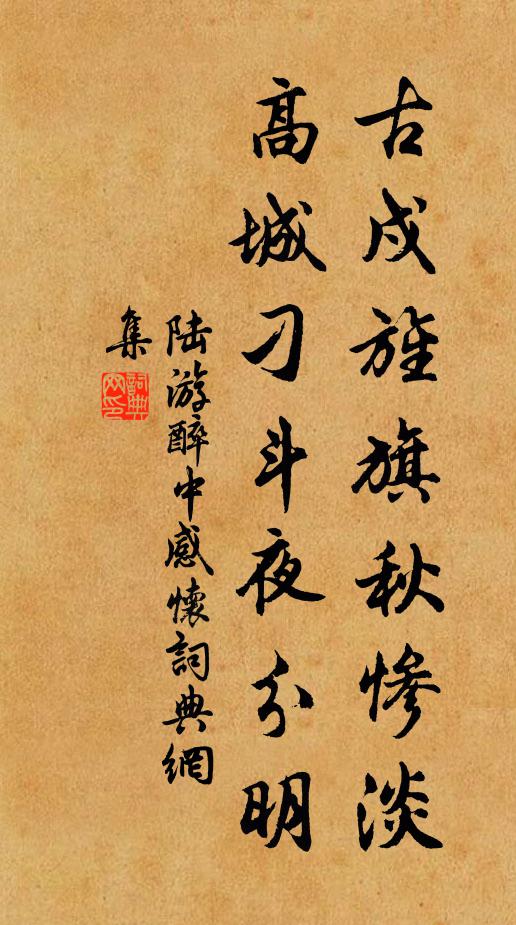 古戍旌旗秋慘淡
高城刁斗夜分明
陆游醉中感懷詞典網
集
詞典
网印